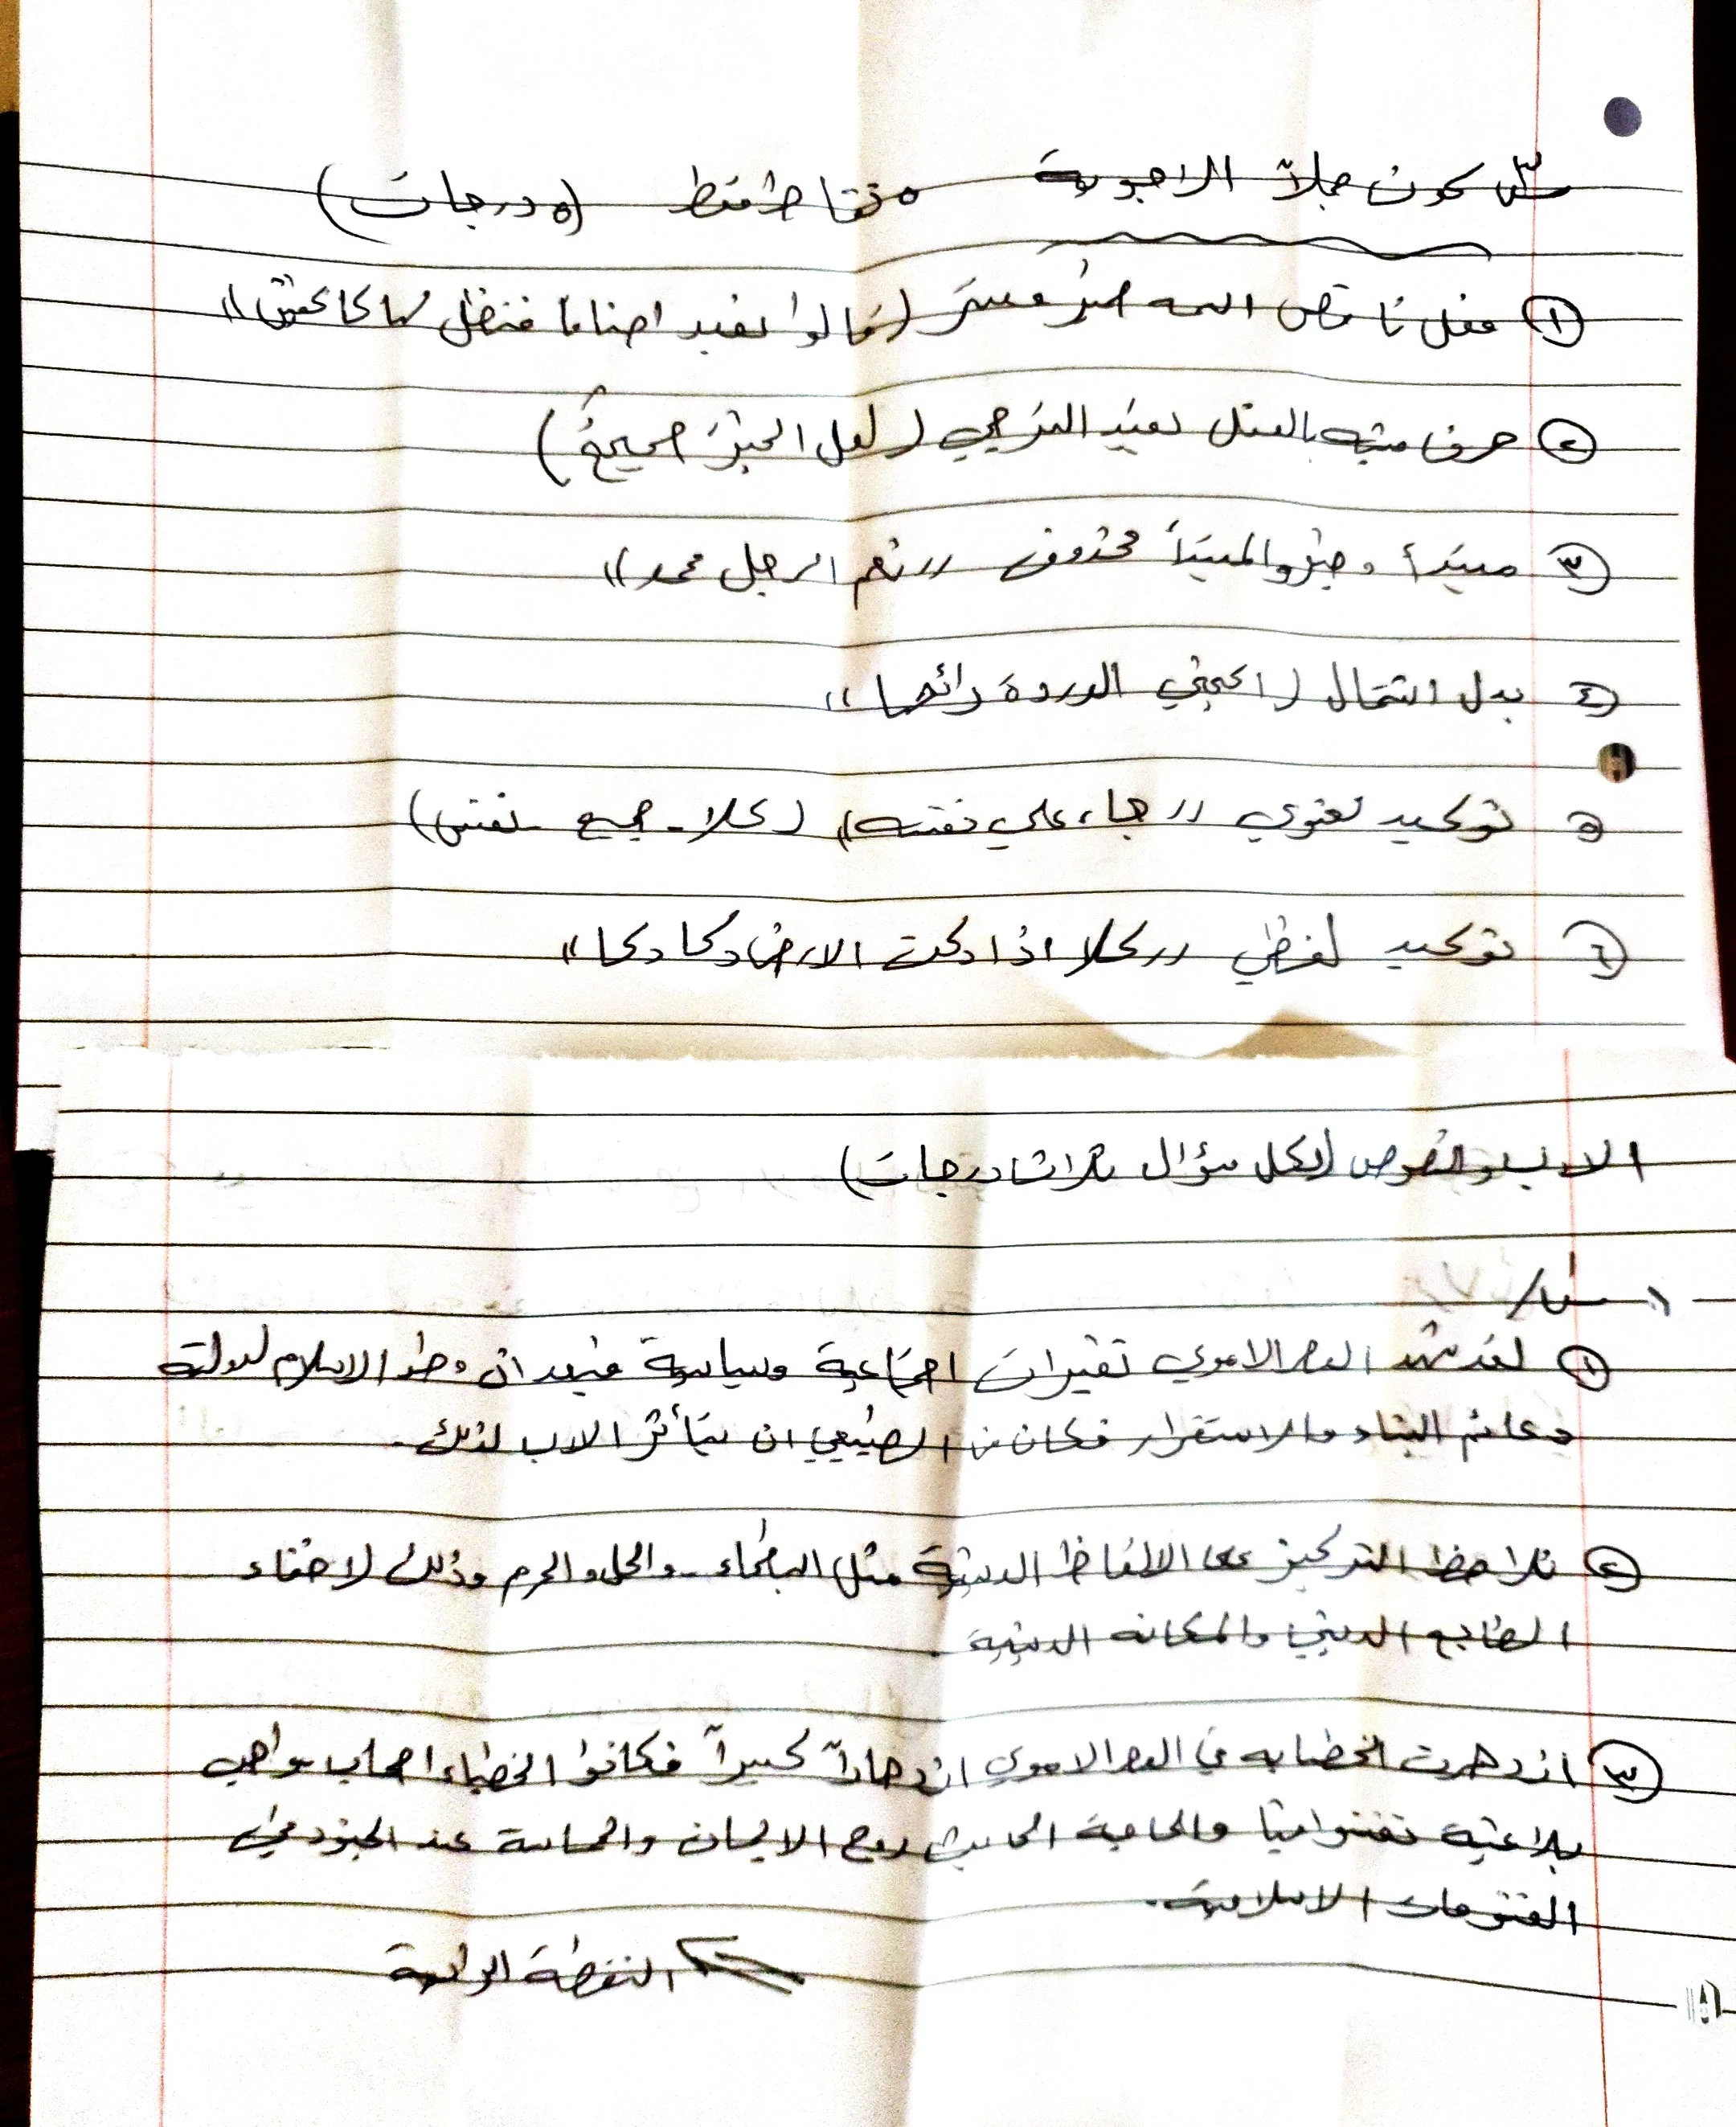 س٣ كون جملاً الاجوبة ٥ نقاط فقط (٥ درجات)
① فعل ناقص اسمه ضمير مستتر (قالوا نعبد اصناماً فنظل لها عاكفين))
② حرف مشبه بالفعل يفيد الترجي (لعل الخبرَ صحيحٌ)
③ مبتدأ وخبر والمبتدأ محذوف ((نعم الرجل محمد))
④ بدل اشتمال (اعجبني الوردة رائحتها))
⑤ توكيد معنوي ((جاء علي نفسه)) (كلا - جميع - نفس)
⑥ توكيد لفظي ((كلا اذا دكت الارض دكا دكا))
الادب والنصوص (لكل سؤال ثلاث درجات)
س١/
① لقد شهد العصر الاموي تغيرات اجتماعية وسياسية فبعد ان وطد الاسلام لدولته
دعائم البناء والاستقرار فكان من الطبيعي ان يتأثر الادب لذلك.
② نلاحظ التركيز على الالفاظ الدينية مثل البطحاء - والحل والحرم وذلك لاضفاء
الطابع الديني والمكانه الدينية.
③ ازدهرت الخطابه في العصر الاموي ازدهاراً كبيراً فكانوا الخطباء اصحاب مواهب
بلاغية تفننوا فيها والحاجة الى بث روح الايمان والحماسة عند الجنود في
الفتوحات الاسلامية.
النقطة الرابعة